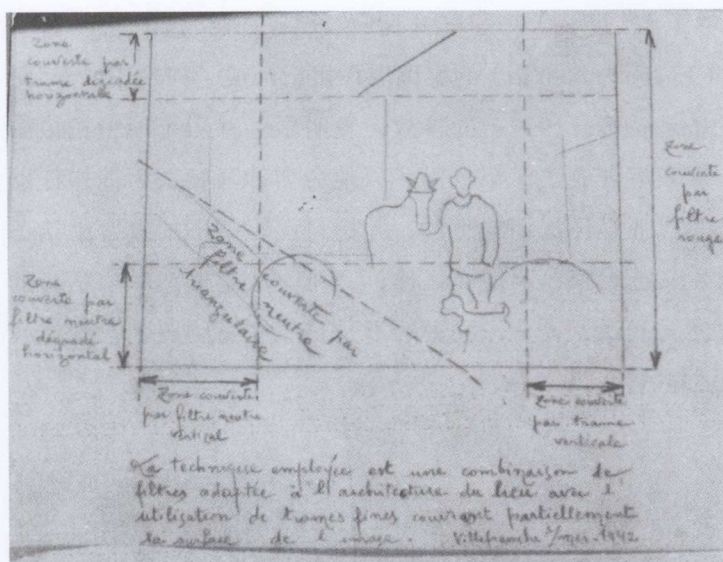 Zone
couverte par
trame dégradée
horizontale
Zone
couverte
par
filtre
rouge
Zone couverte par
filtre neutre
triangulaire
Zone
couverte par
filtre neutre
dégradé
horizontal
Zone couverte
par filtre neutre
vertical
Zone couverte
par trame
verticale
La technique employée est une combinaison de
filtres adaptée à l'architecture du lieu avec l'
utilisation de trames fines couvrant partiellement
la surface de l'image. Villefranche s/mer. 1942